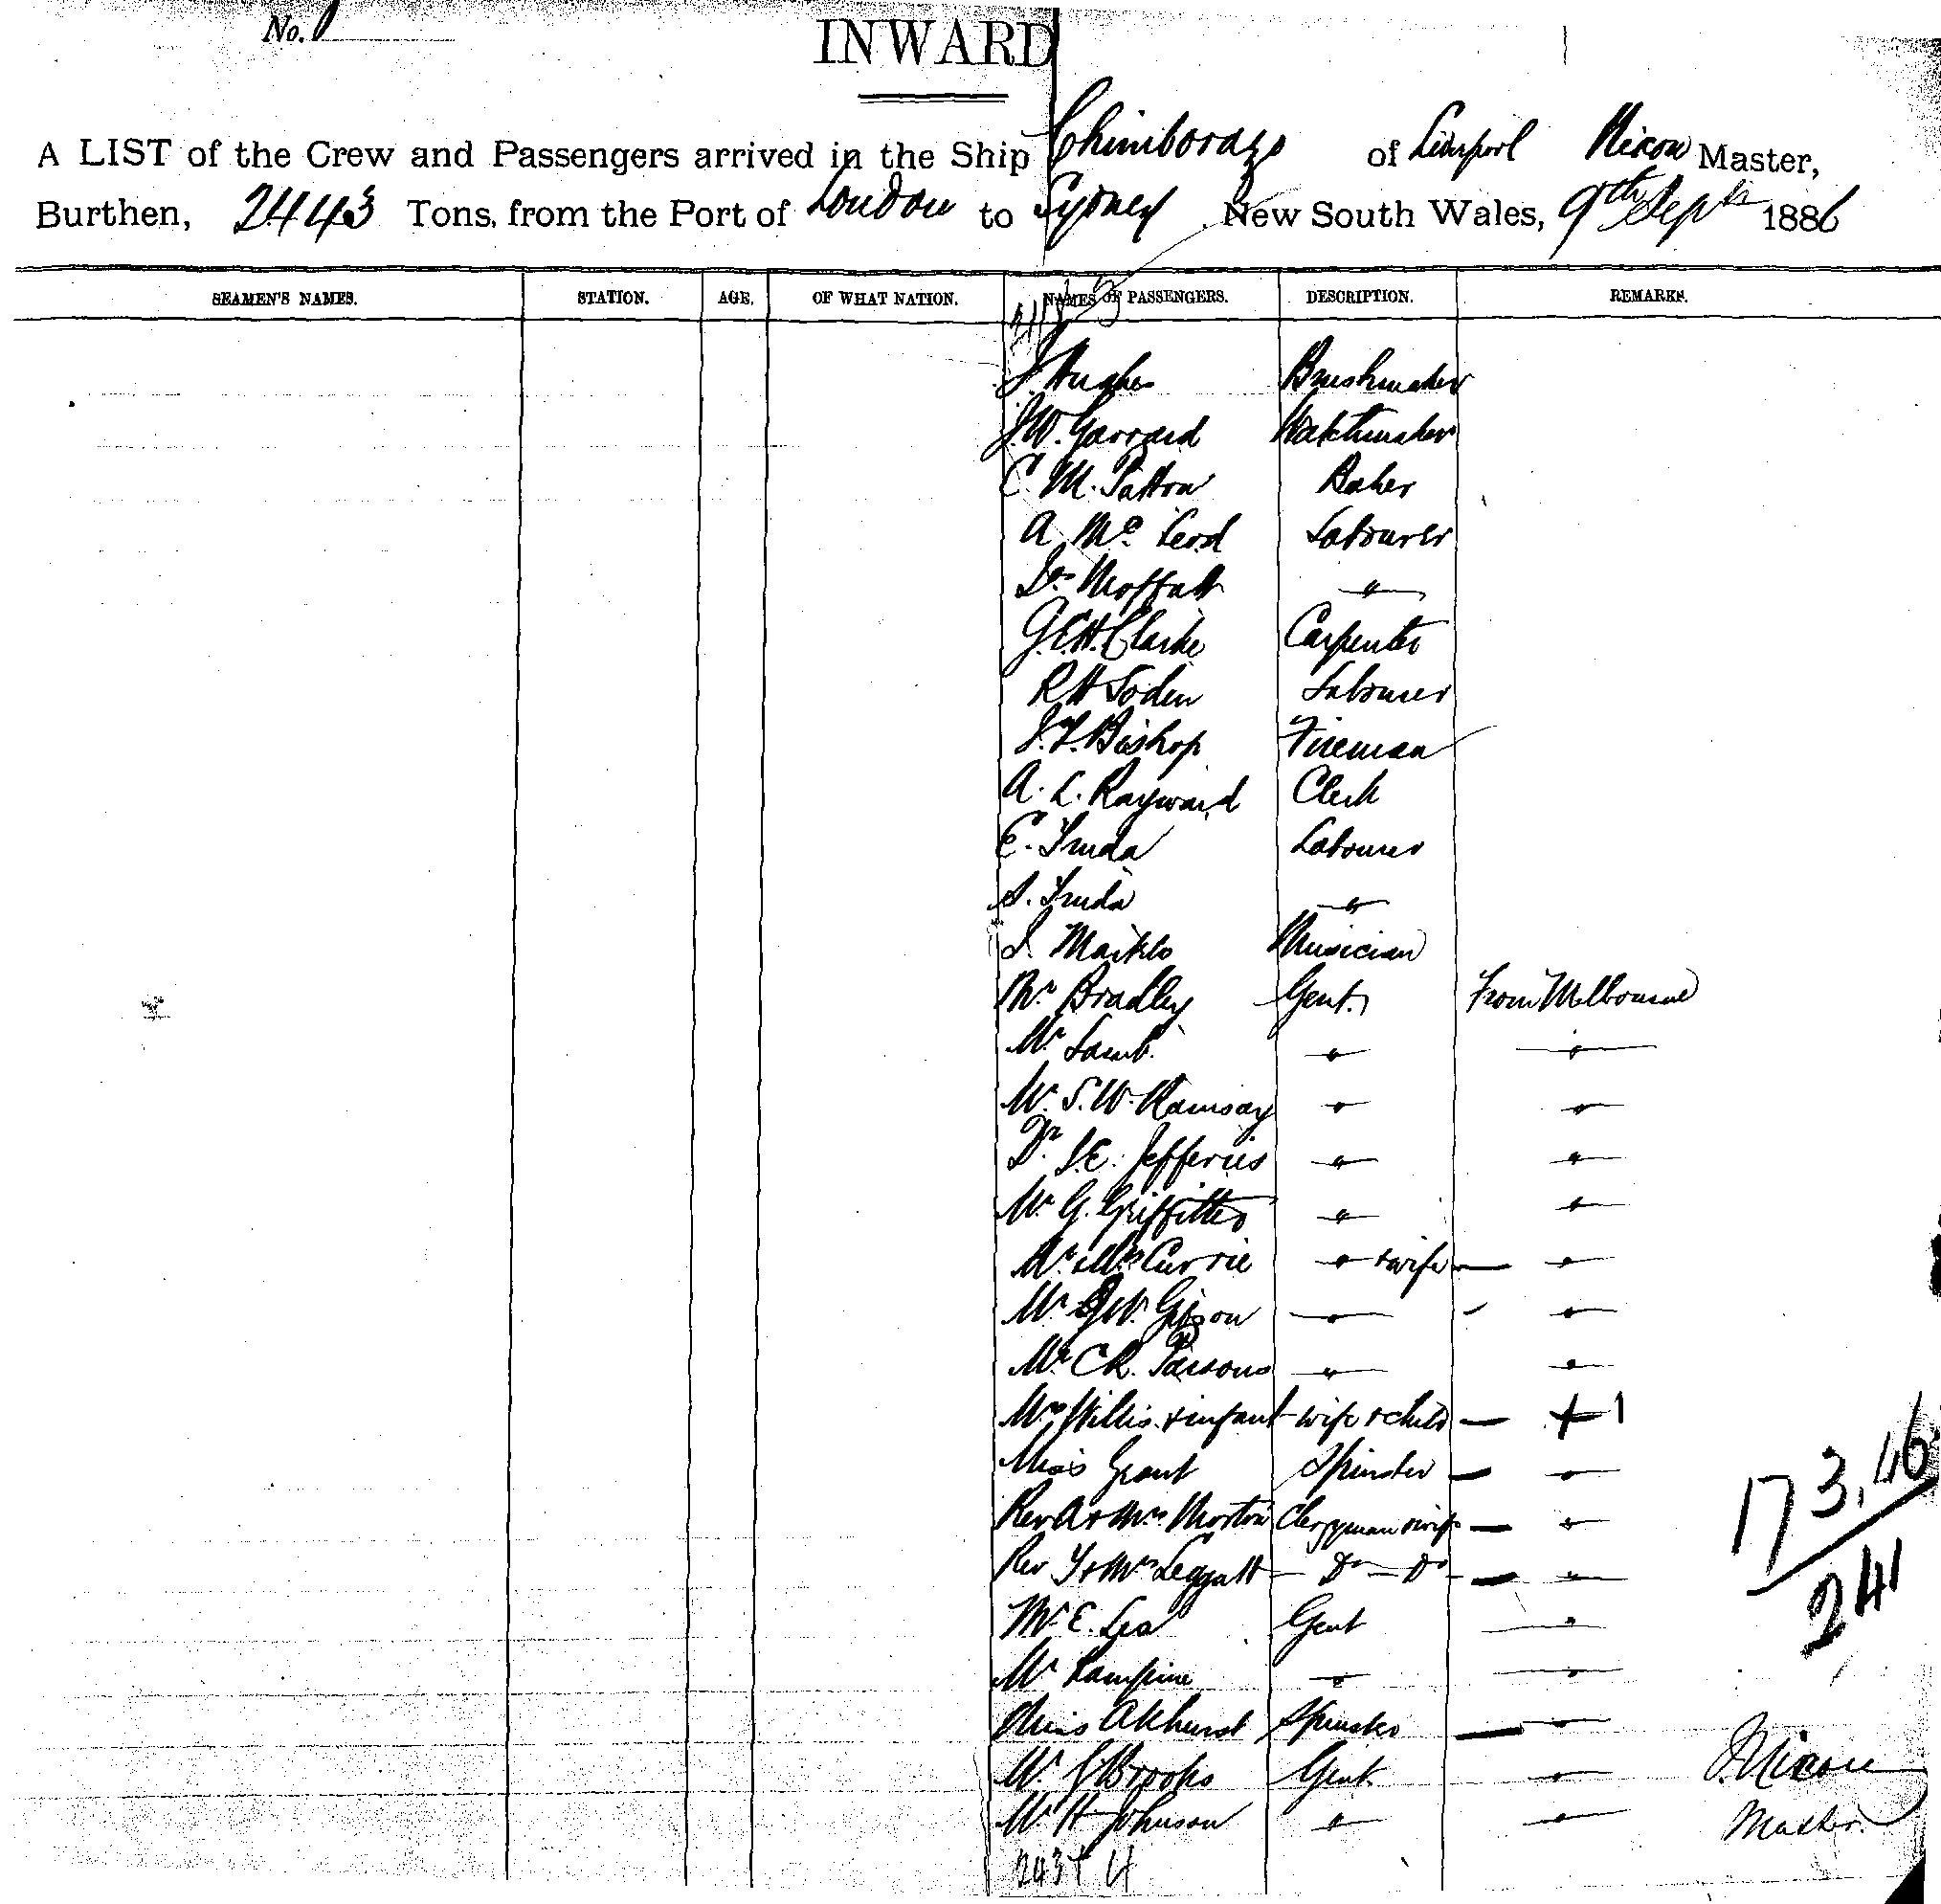 No.
INWARD
A LIST of the Crew and Passengers arrived in the Ship Chimborazo of Liverpool Nixon Master,
Burthen, 2443 Tons, from the Port of London to Sydney New South Wales, 9th Septr 1886
SEAMEN'S NAMES. STATION. AGE. OF WHAT NATION. NAMES OF PASSENGERS. DESCRIPTION. REMARKS.
J. Hughes Brushmaker
J. W. Garrard Watchmaker
C. M. Patton Baker
A Mc Leod Labourer
Moffatt "
G. E. H. Clarke Carpenter
R H Soden Labourer
Bishop Fireman
A. L. Rayward Clerk
E. Truda Labourer
S. Truda "
Musician
Mr Bradley Gent. From Melbourne
Mr Lamb. " "
Mr S. W. Ramsay " "
Dr. J. E. Jefferies " "
Mr G. Griffiths " "
Mr & Mrs Currie " & wife "
Mr " "
Mr C R. Parsons " "
Mrs Willis & infant wife & child 1
Miss Grant Spinster "
Rev A & Mrs Morton Clergyman & wife "
Rev T & Mrs Leggatt Do Do "
Mr E. Lea Gent "
Mr " "
Miss Akhurst Spinster "
Mr J Brooks Gent. "
Mr H Johnson " "
173,
241
J. Nixon
Master.